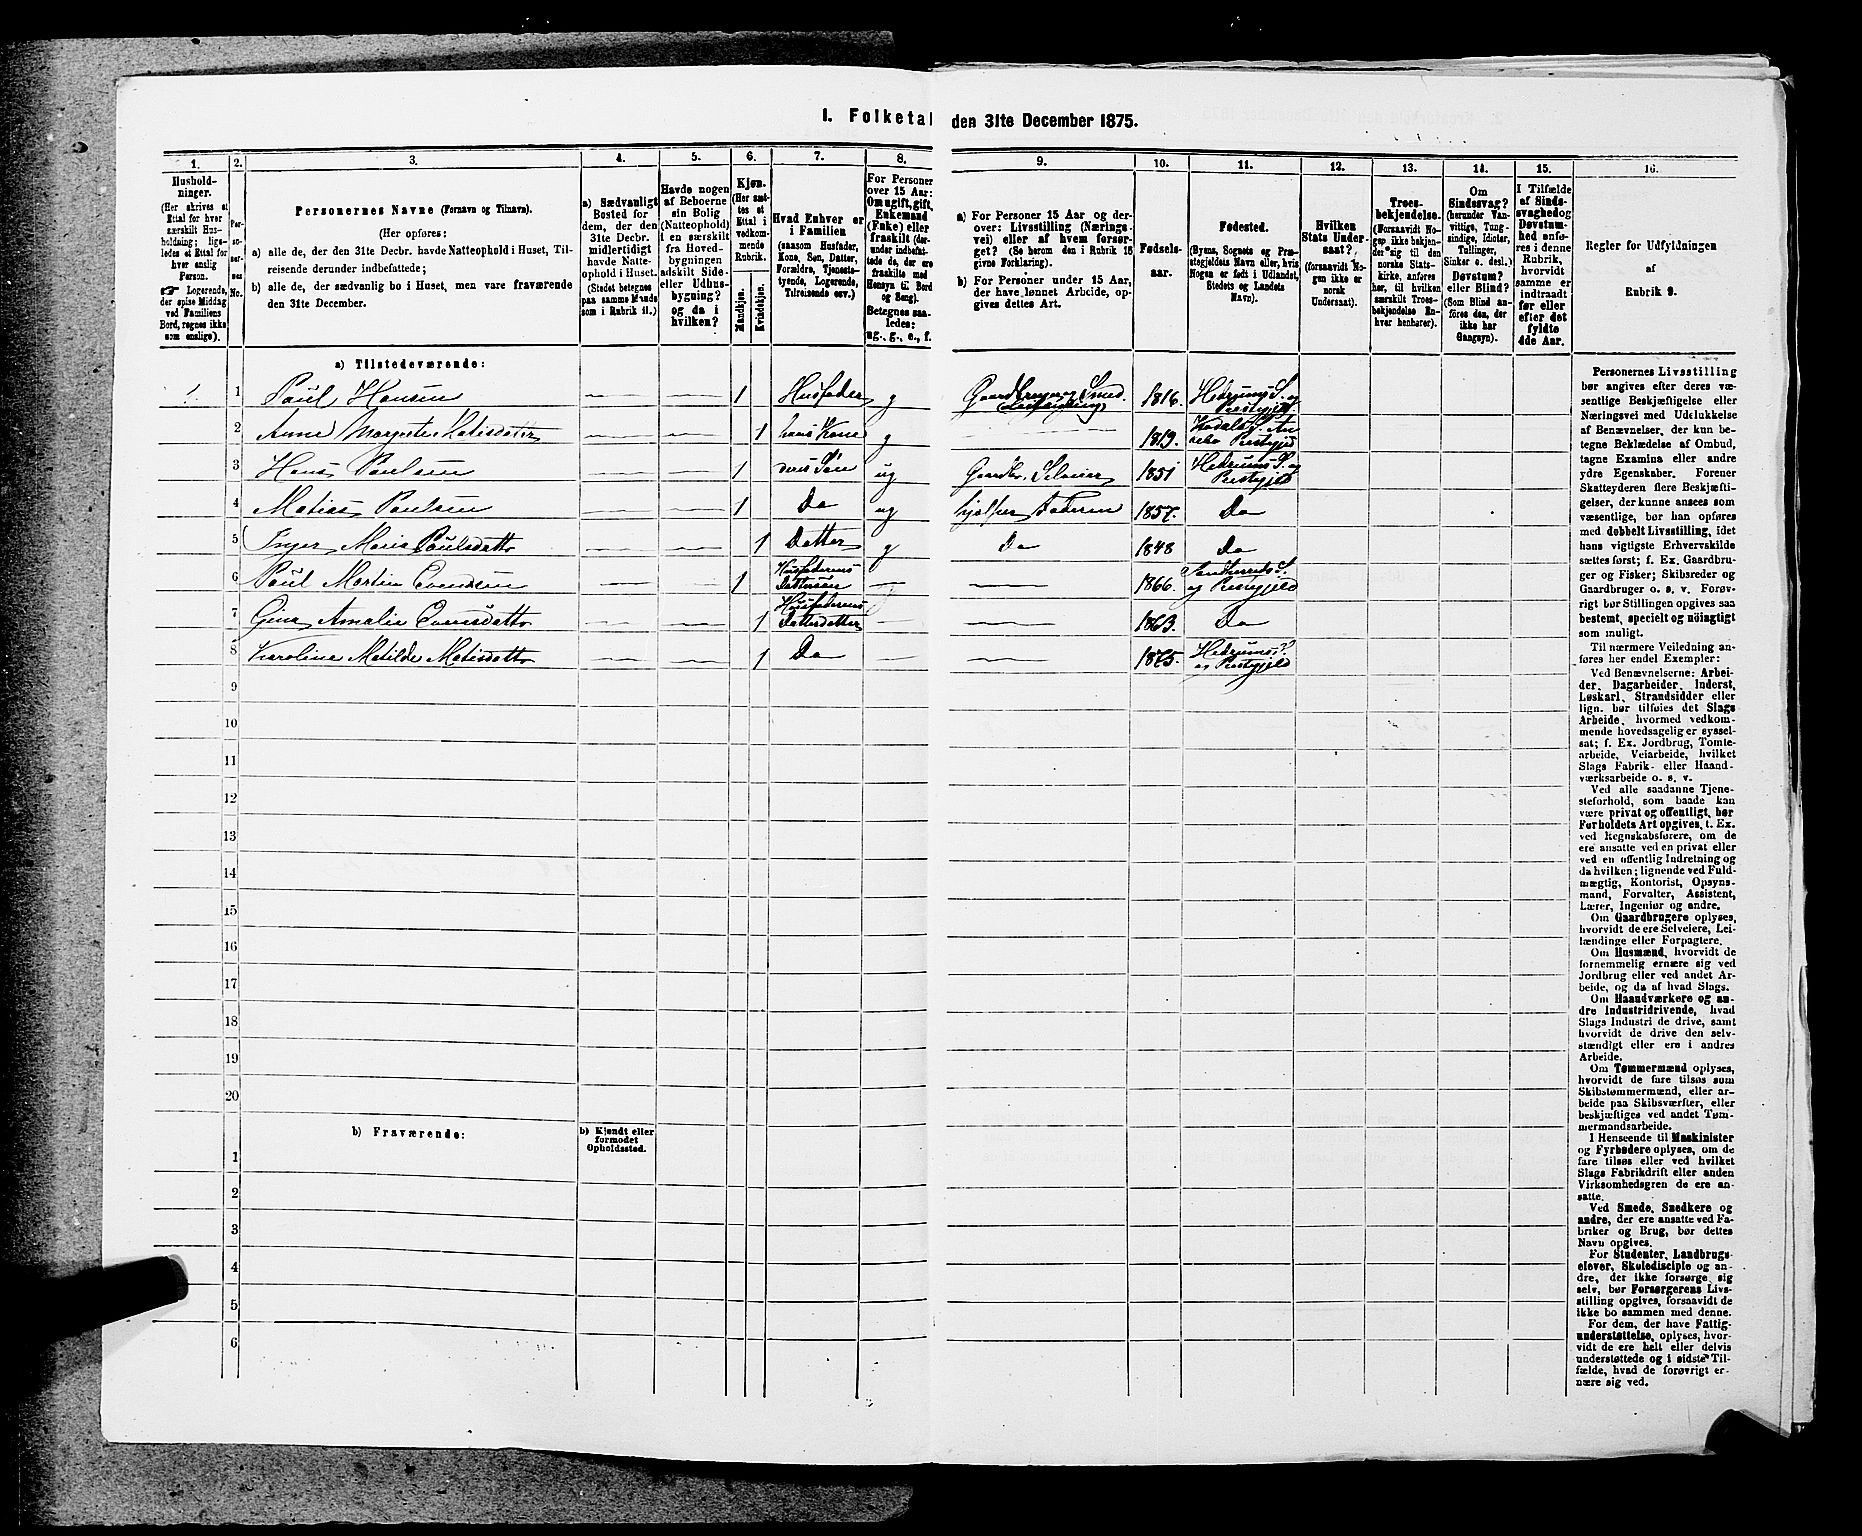 1. Folketal den 31te December 1875.
1. 2. 3. 4. 5. 6. 7. 8. 9. 10. 11. 12. 13. 14. 15. 16.
Hushold-
ninger.
(Her skrives et
Ettal for hver
særskilt Hus-
holdning; lige-
ledes et Ettal for
hver enslig
Person.
☞ Logerende,
der spise Middag
ved Familiens
Bord, regnes ikke
som enslige).
Per-
so-
ner-
nes
No.
Personernes Navne (Fornavn og Tilnavn).
(Her opføres:
a) alle de, der den 31te Decbr. havde Natteophold i Huset, Til-
reisende derunder indbefattede;
b) alle de, der sædvanlig bo i Huset, men vare fraværende
den 31te December.
a) Sædvanligt
Bosted for
dem, der den
31te Decbr.
midlertidigt
havde Natte-
ophold i Huset.
(Stedet betegnes
paa samme Maade
som i Rubrik 11.)
Havde nogen
af Beboerne
sin Bolig
(Natteophold)
i en særskilt
fra Hoved-
bygningen
adskilt Side-
eller Udhus-
bygning?
og da i
hvilken?
Kjøn.
(Her sæt-
tes et
Ettal i
vedkom-
mende
Rubrik.
Mandkjøn.
Kvindekjøn.
Hvad Enhver er
i Familien
(saasom Husfader,
Kone, Søn, Datter,
Forældre, Tjeneste-
tyende, Logerende,
Tilreisende osv.)
For Personer
over 15 Aar:
Om ugift, gift,
Enkemand
(Enke) eller
fraskilt (der-
under indbefat-
tede de, der ere
fraskilte med
Hensyn til Bord
og Seng).
Betegnes saa-
ledes:
ug., g., e., f.
a) For Personer 15 Aar og der-
over: Livsstilling (Nærings-
vei) eller af hvem forsør-
get? (Se herom den i Rubrik 16
givne Forklaring).
b) For Personer under 15 Aar,
der have lønnet Arbeide, op-
gives dettes Art.
Fødsels-
aar.
Fødested.
(Byens, Sognets og Præ-
stegjeldets Navn eller, hvis
Nogen er født i Udlandet,
Stedets og Landets
Navn).
Hvilken
Stats Under-
saat?
(forsaavidt No-
gen ikke er
norsk
Undersaat).
Troes-
bekjendelse.
(Forsaavidt No-
gen ikke bekjen-
der sig til den
norske Stats-
kirke, anføres
her, til hvilken
særskilt Troes-
bekjendelse En-
hver henhører).
Om
Sindssvag?
(herunder Van-
vittige, Tung-
sindige, Idioter,
Tullinger,
Sinker o. desl.)
Døvstum?
eller Blind?
(Som Blind an-
føres den, der
ikke har
Gangsyn).
I Tilfælde
af Sinds-
svaghed og
Døvstum-
hed anfø-
res i denne
Rubrik,
hvorvidt
samme er
indtraadt
før eller
efter det
fyldte
4de Aar.
Regler for Udfyldningen
af
Rubrik 9.
a) Tilstedeværende:
1. 1 Paul Hansen 1 Husfader g Gaardbruger og Smed 1816. Hedrums S. og Prestgjeld
2 Anne Margrete Matisdatter 1 hans Kone g 1819. Prestgjeld
3 Hans Paulsen 1 deres Søn ug Gaardbr. Selveier 1851 Hedrums S. og Prestgjeld
4 Matias Paulsen 1 Do ug hjelper Faderen 1857. Do
5 Inger Maria Paulsdatter 1 Datter g Do 1848 Do
6 Paul Martin Evensen 1 Husfaderens Dattersøn 1866. Sandherreds S. og Prestgjeld
7 Gina Amalie Evensdatter 1 Husfaderens Datterdatter 1863. Do
8 Karoline Matilde Matisdatter 1 Do 1875. Hedrums S. og Prestgjeld
9
10
11
12
13
14
15
16
17
18
19
20
b) Fraværende:
b) Kjendt eller
formodet
Opholdssted.
1
2
3
4
5
6
Personernes Livsstilling
bør angives efter deres væ-
sentlige Beskjæftigelse eller
Næringsvei med Udelukkelse
af Benævnelser, der kun be-
tegne Beklædelse af Ombud,
tagne Examina eller andre
ydre Egenskaber. Forener
Skatteyderen flere Beskjæfti-
gelser, der kunne ansees som
væsentlige, bør han opføres
med dobbelt Livsstilling, idet
hans vigtigste Erhvervskilde
sættes først; f. Ex. Gaardbru-
ger og Fisker; Skibsreder og
Gaardbruger o. s. v. Forøv-
rigt bør Stillingen opgives saa
bestemt, specielt og nöiagtigt
som muligt.
Til nærmere Veiledning an-
føres her endel Exempler:
Ved Benævnelserne: Arbei-
der, Dagarbeider, Inderst,
Løskarl, Strandsidder eller
lign. bør tilføies det Slags
Arbeide, hvormed vedkom-
mende hovedsagelig er syssel-
sat; f. Ex. Jordbrug, Tomte-
arbeide, Veiarbeide, hvilket
Slags Fabrik- eller Haand-
værksarbeide o. s. v.
Ved alle saadanne Tjene-
steforhold, som baade kan
være privat og offentligt, bør
Forholdets Art opgives, t. Ex.
ved Regnskabsførere, om de
ere ansatte ved en privat eller
ved en offentlig Indretning og
da hvilken; lignende ved Fuld-
mægtig, Kontorist, Opsyns-
mand, Forvalter, Assistent,
Lærer, Ingeniør og andre.
Om Gaardbrugere oplyses,
hvorvidt de ere Selveiere, Lei-
lændinge eller Forpagtere.
Om Husmænd, hvorvidt de
fornemmelig ernære sig ved
Jordbrug eller ved andet Ar-
beide, og da af hvad Slags.
Om Haandværkere og an-
dre Industridrivende, hvad
Slags Industri de drive, samt
hvorvidt de drive den selv-
stændigt eller ere i andres
Arbeide.
Om Tømmermænd oplyses,
hvorvidt de fare tilsøs som
Skibstømmermænd, eller ar-
beide paa Skibsværfter, eller
beskjæftiges ved andet Tøm-
mermandsarbeide.
I Henseende til Maskinister
og Fyrbødere oplyses, om de
fare tilsøs eller ved hvilket
Slags Fabrikdrift eller anden
Virksomhedsgren de ere an-
satte.
Ved Smede, Snedkere og
andre, der ere ansatte ved Fa-
briker og Brug, bør dettes
Navn opgives.
For Studenter, Landbrugs-
elever, Skoledisciple og an-
dre, der ikke forsørge sig
selv, bør Forsørgerens Livs-
stilling opgives, forsaavidt de
ikke bo sammen med denne.
For dem, der have Fattig-
understøttelse, oplyses, hvor-
vidt de ere helt eller delvis
understøttede og i sidste Til-
fælde, hvad de forøvrigt er-
nære sig ved.